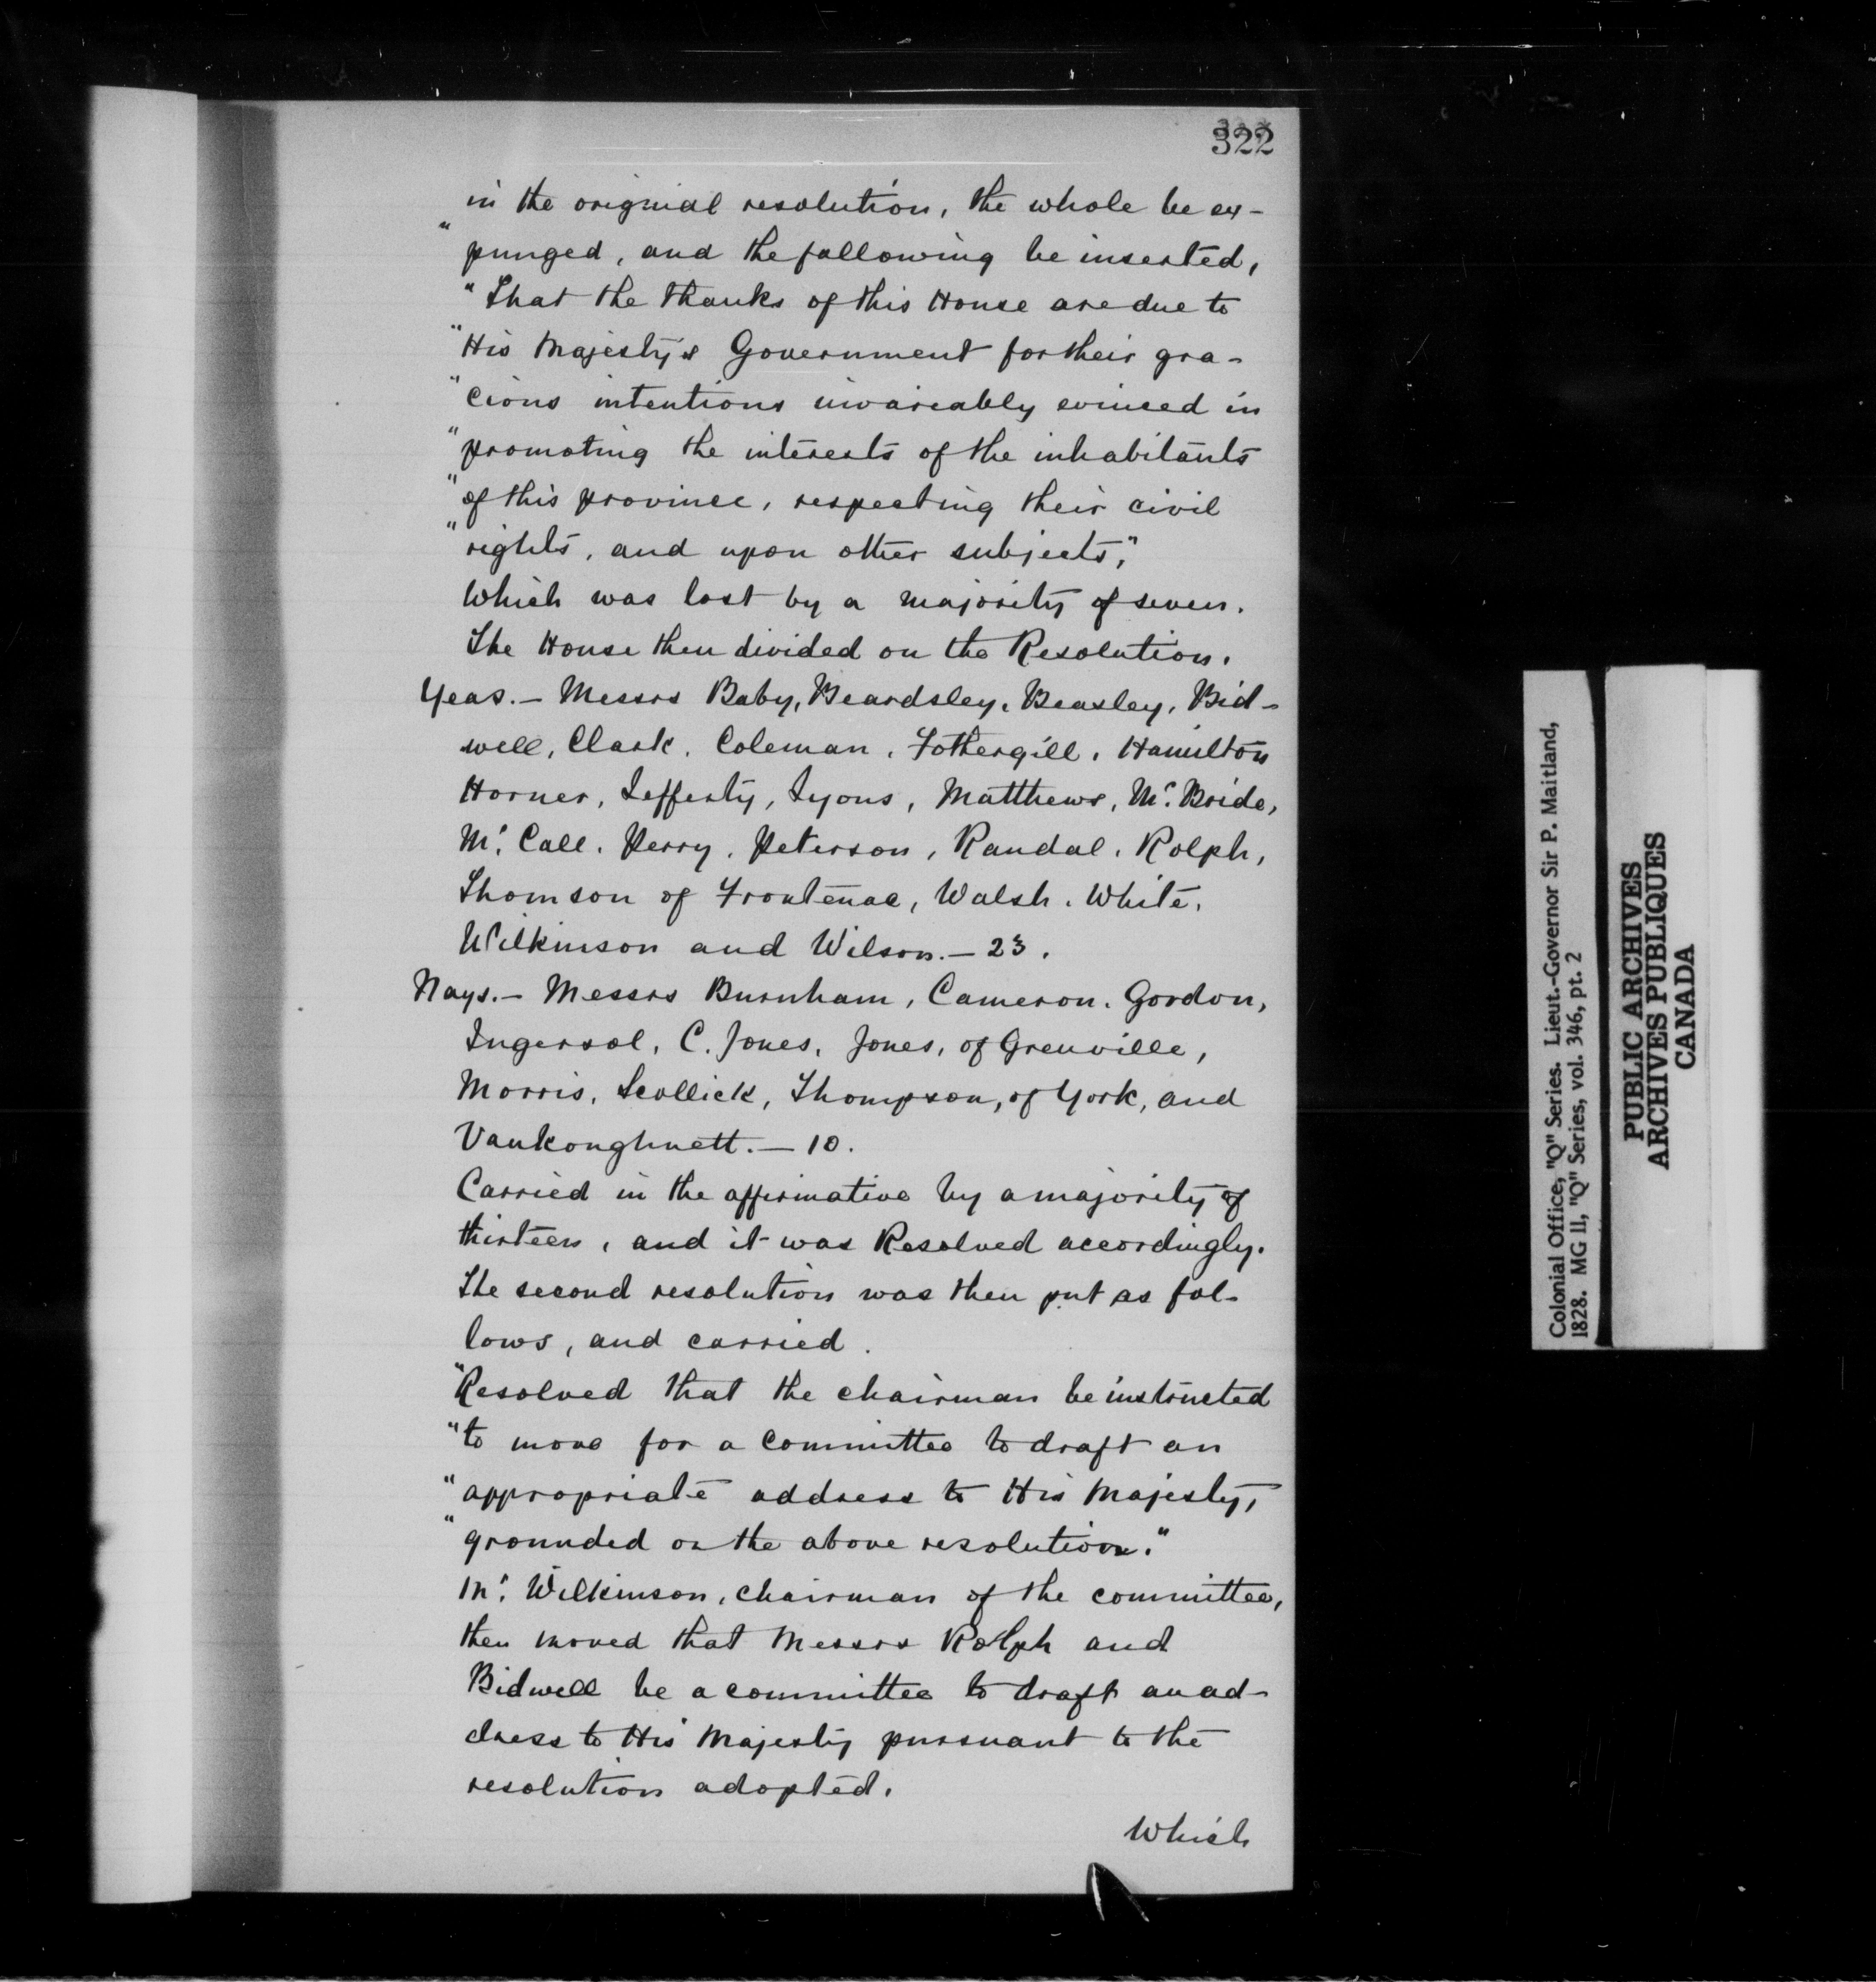 322
in the original resolution, the whole be ex-
" punged, and the following be inserted,
" That the thanks of this House are due to
" His Majesty's Government for their gra-
" cious intentions invareably evinced in
" promoting the interests of the inhabitants
" of this province, respecting their civil
" rights, and upon other subjects,"
Which was lost by a majority of seven.
The House then divided on the Resolution.
Yeas.— Messrs Baby, Beardsley, Beasley, Bid-
well, Clark, Coleman, Fothergill, Hamilton
Horner, Lefferty, Lyons, Matthews, Mc. Bride,
Mc. Call, Perry, Peterson, Randal, Rolph,
Thomson of Frontenac, Walsh, White,
Wilkinson and Wilson.— 23.
Nays.— Messrs Burnham, Cameron, Gordon,
Ingersol, C. Jones, Jones, of Grenville,
Morris, Scollick, Thompson, of York, and
Vankoughnett.— 10.
Carried in the affirmative by a majority of
thirteen, and it was Resolved accordingly.
The second resolution was then put as fol-
lows, and carried.
"Resolved that the chairman be instructed
" to move for a Committee to draft an
" appropriate address to His Majesty,
" grounded on the above resolution."
Mr. Wilkinson, chairman of the committee,
then moved that Messrs Rolph and
Bidwell be a committee to draft an ad-
dress to His Majesty pursuant to the
resolution adopted.
Which
Colonial Office, "Q" Series. Lieut.-Governor Sir P. Maitland,
1828. MG 11, "Q" Series, vol. 346, pt. 2
PUBLIC ARCHIVES
ARCHIVES PUBLIQUES
CANADA